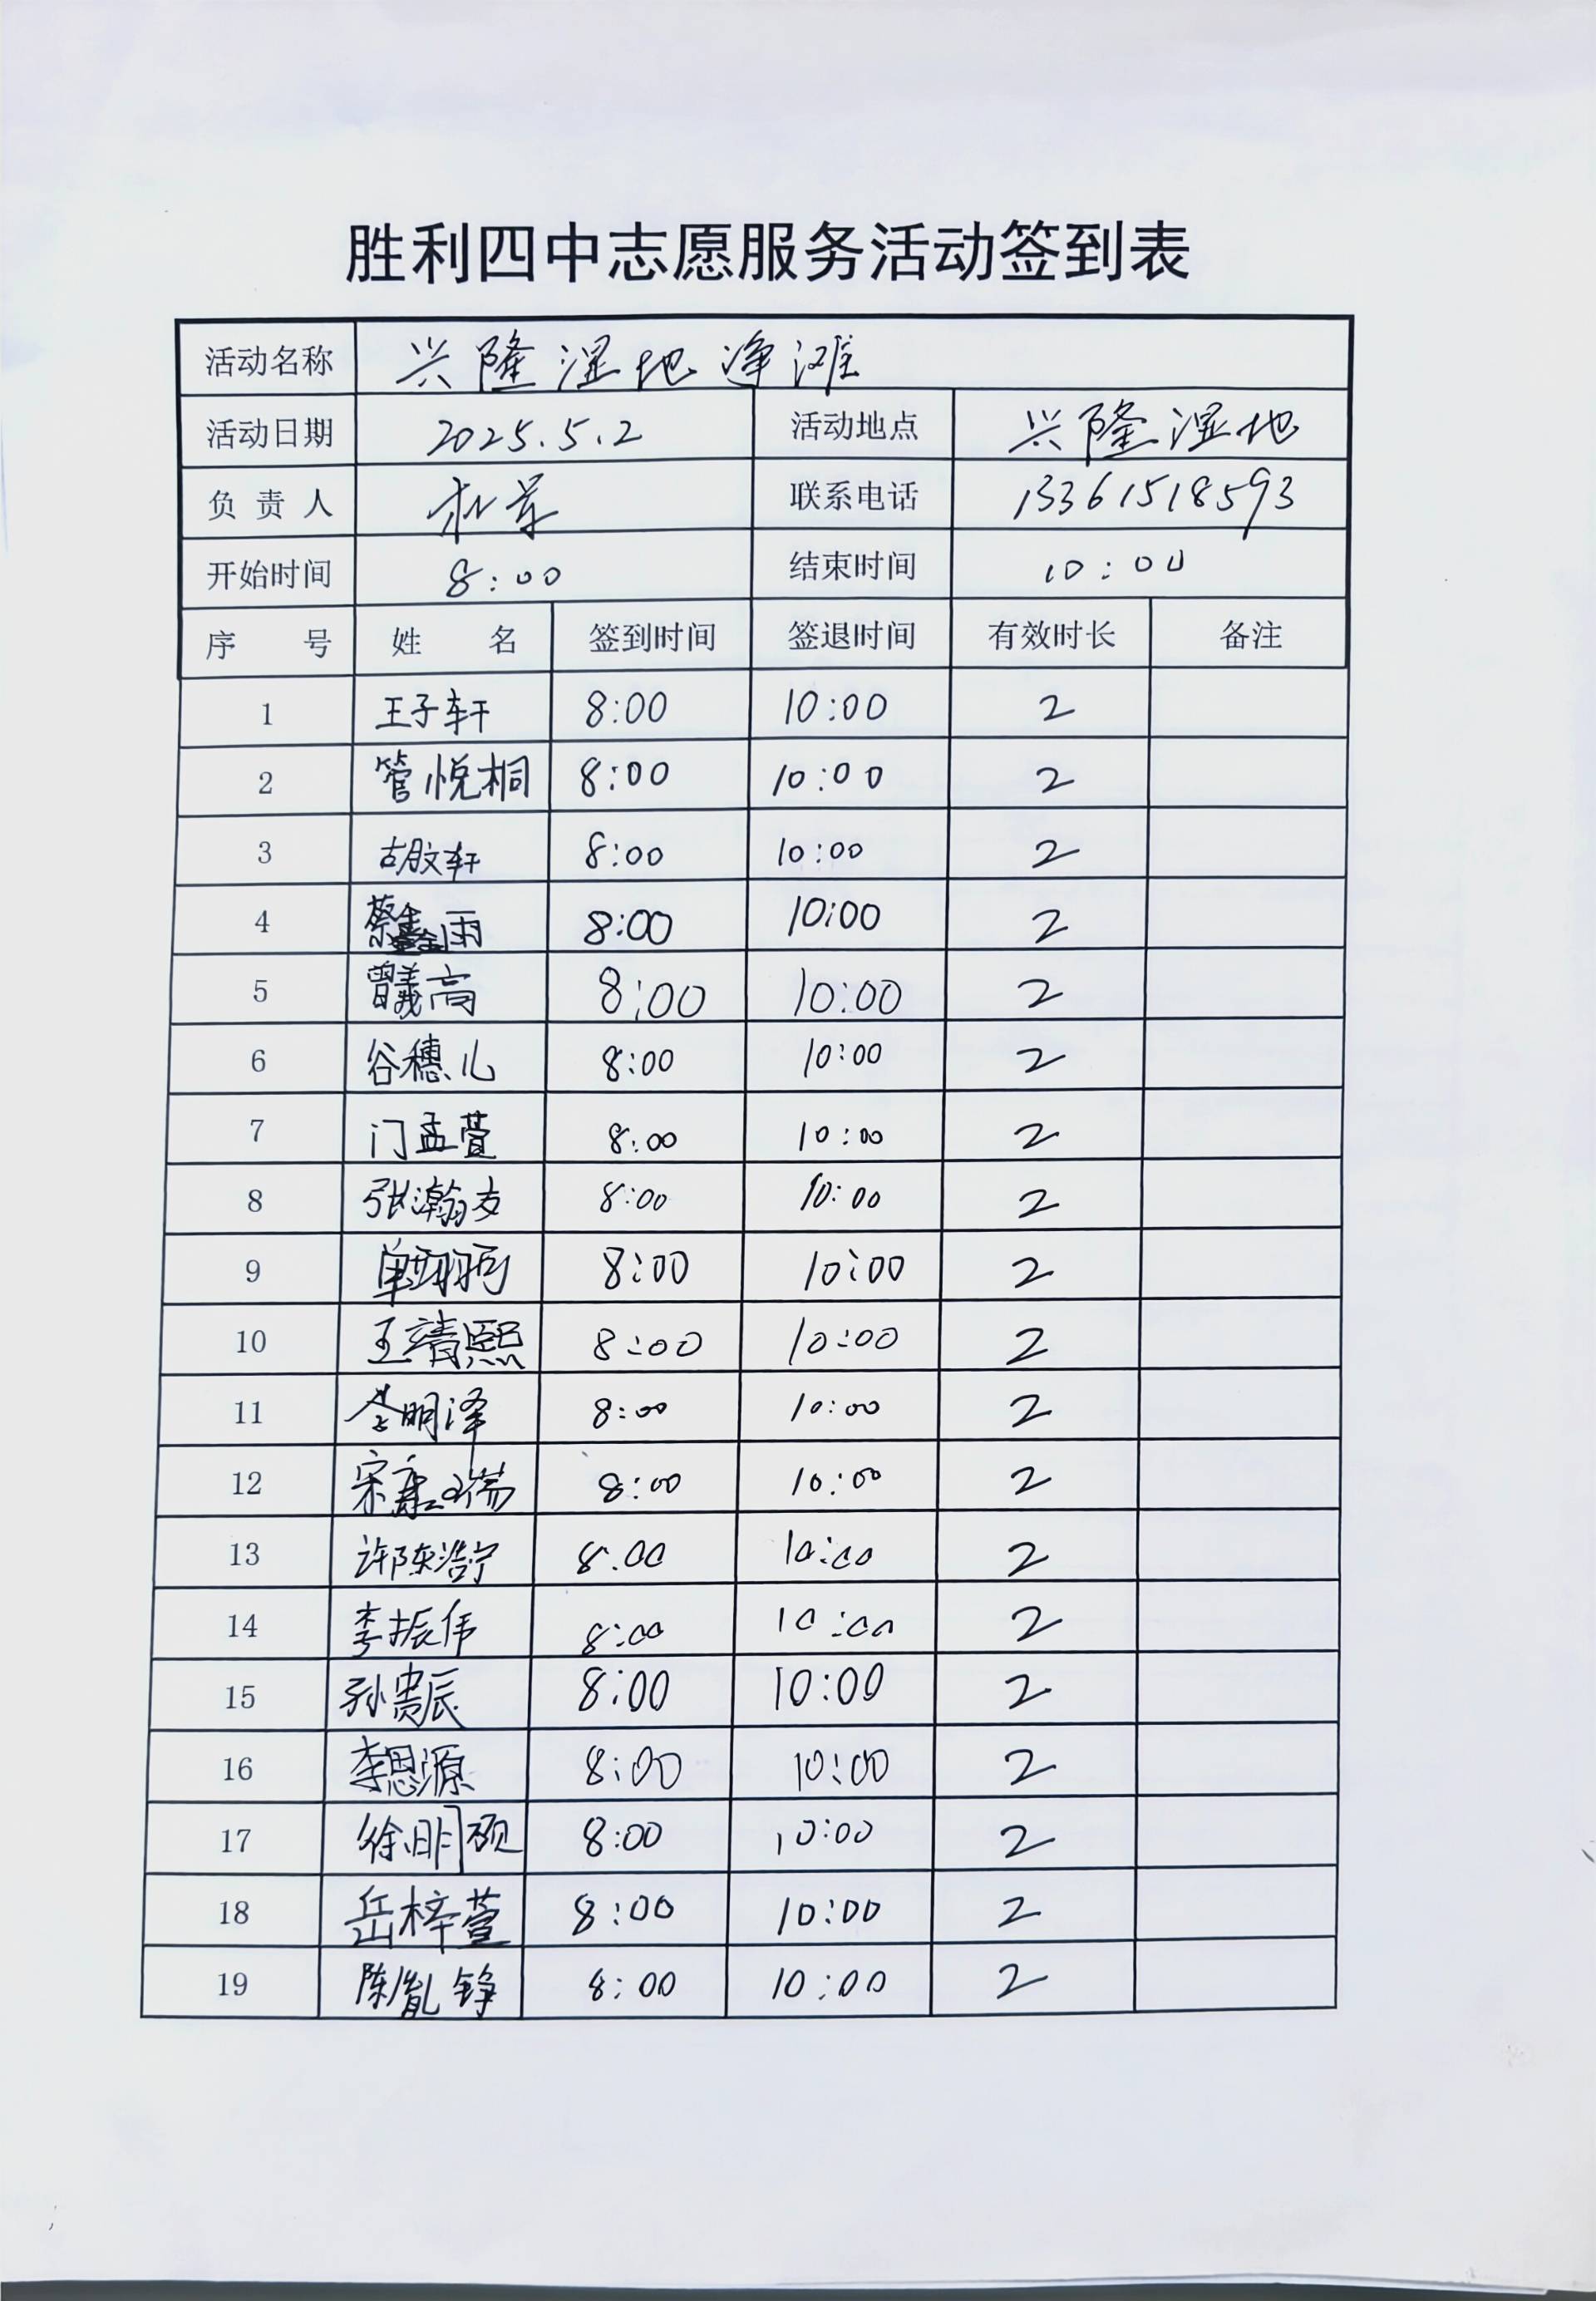 胜利四中志愿服务活动签到表
活动名称 兴隆湿地净滩
活动日期 2025.5.2 活动地点 兴隆湿地
负责人 联系电话 13361518593
开始时间 8:00 结束时间 10:00
序号 姓名 签到时间 签退时间 有效时长 备注
1 王子轩 8:00 10:00 2
2 管悦桐 8:00 10:00 2
3 胡文轩 8:00 10:00 2
4 蔡鑫雨 8:00 10:00 2
5 曾義高 8:00 10:00 2
6 谷穗儿 8:00 10:00 2
7 门孟萱 8:00 10:00 2
8 张瀚友 8:00 10:00 2
9 8:00 10:00 2
10 王靖熙 8:00 10:00 2
11 李明泽 8:00 10:00 2
12 8:00 10:00 2
13 许陈浩宁 8:00 10:00 2
14 李振伟 8:00 10:00 2
15 8:00 10:00 2
16 李思源 8:00 10:00 2
17 徐明硕 8:00 10:00 2
18 岳梓萱 8:00 10:00 2
19 陈胤铮 8:00 10:00 2